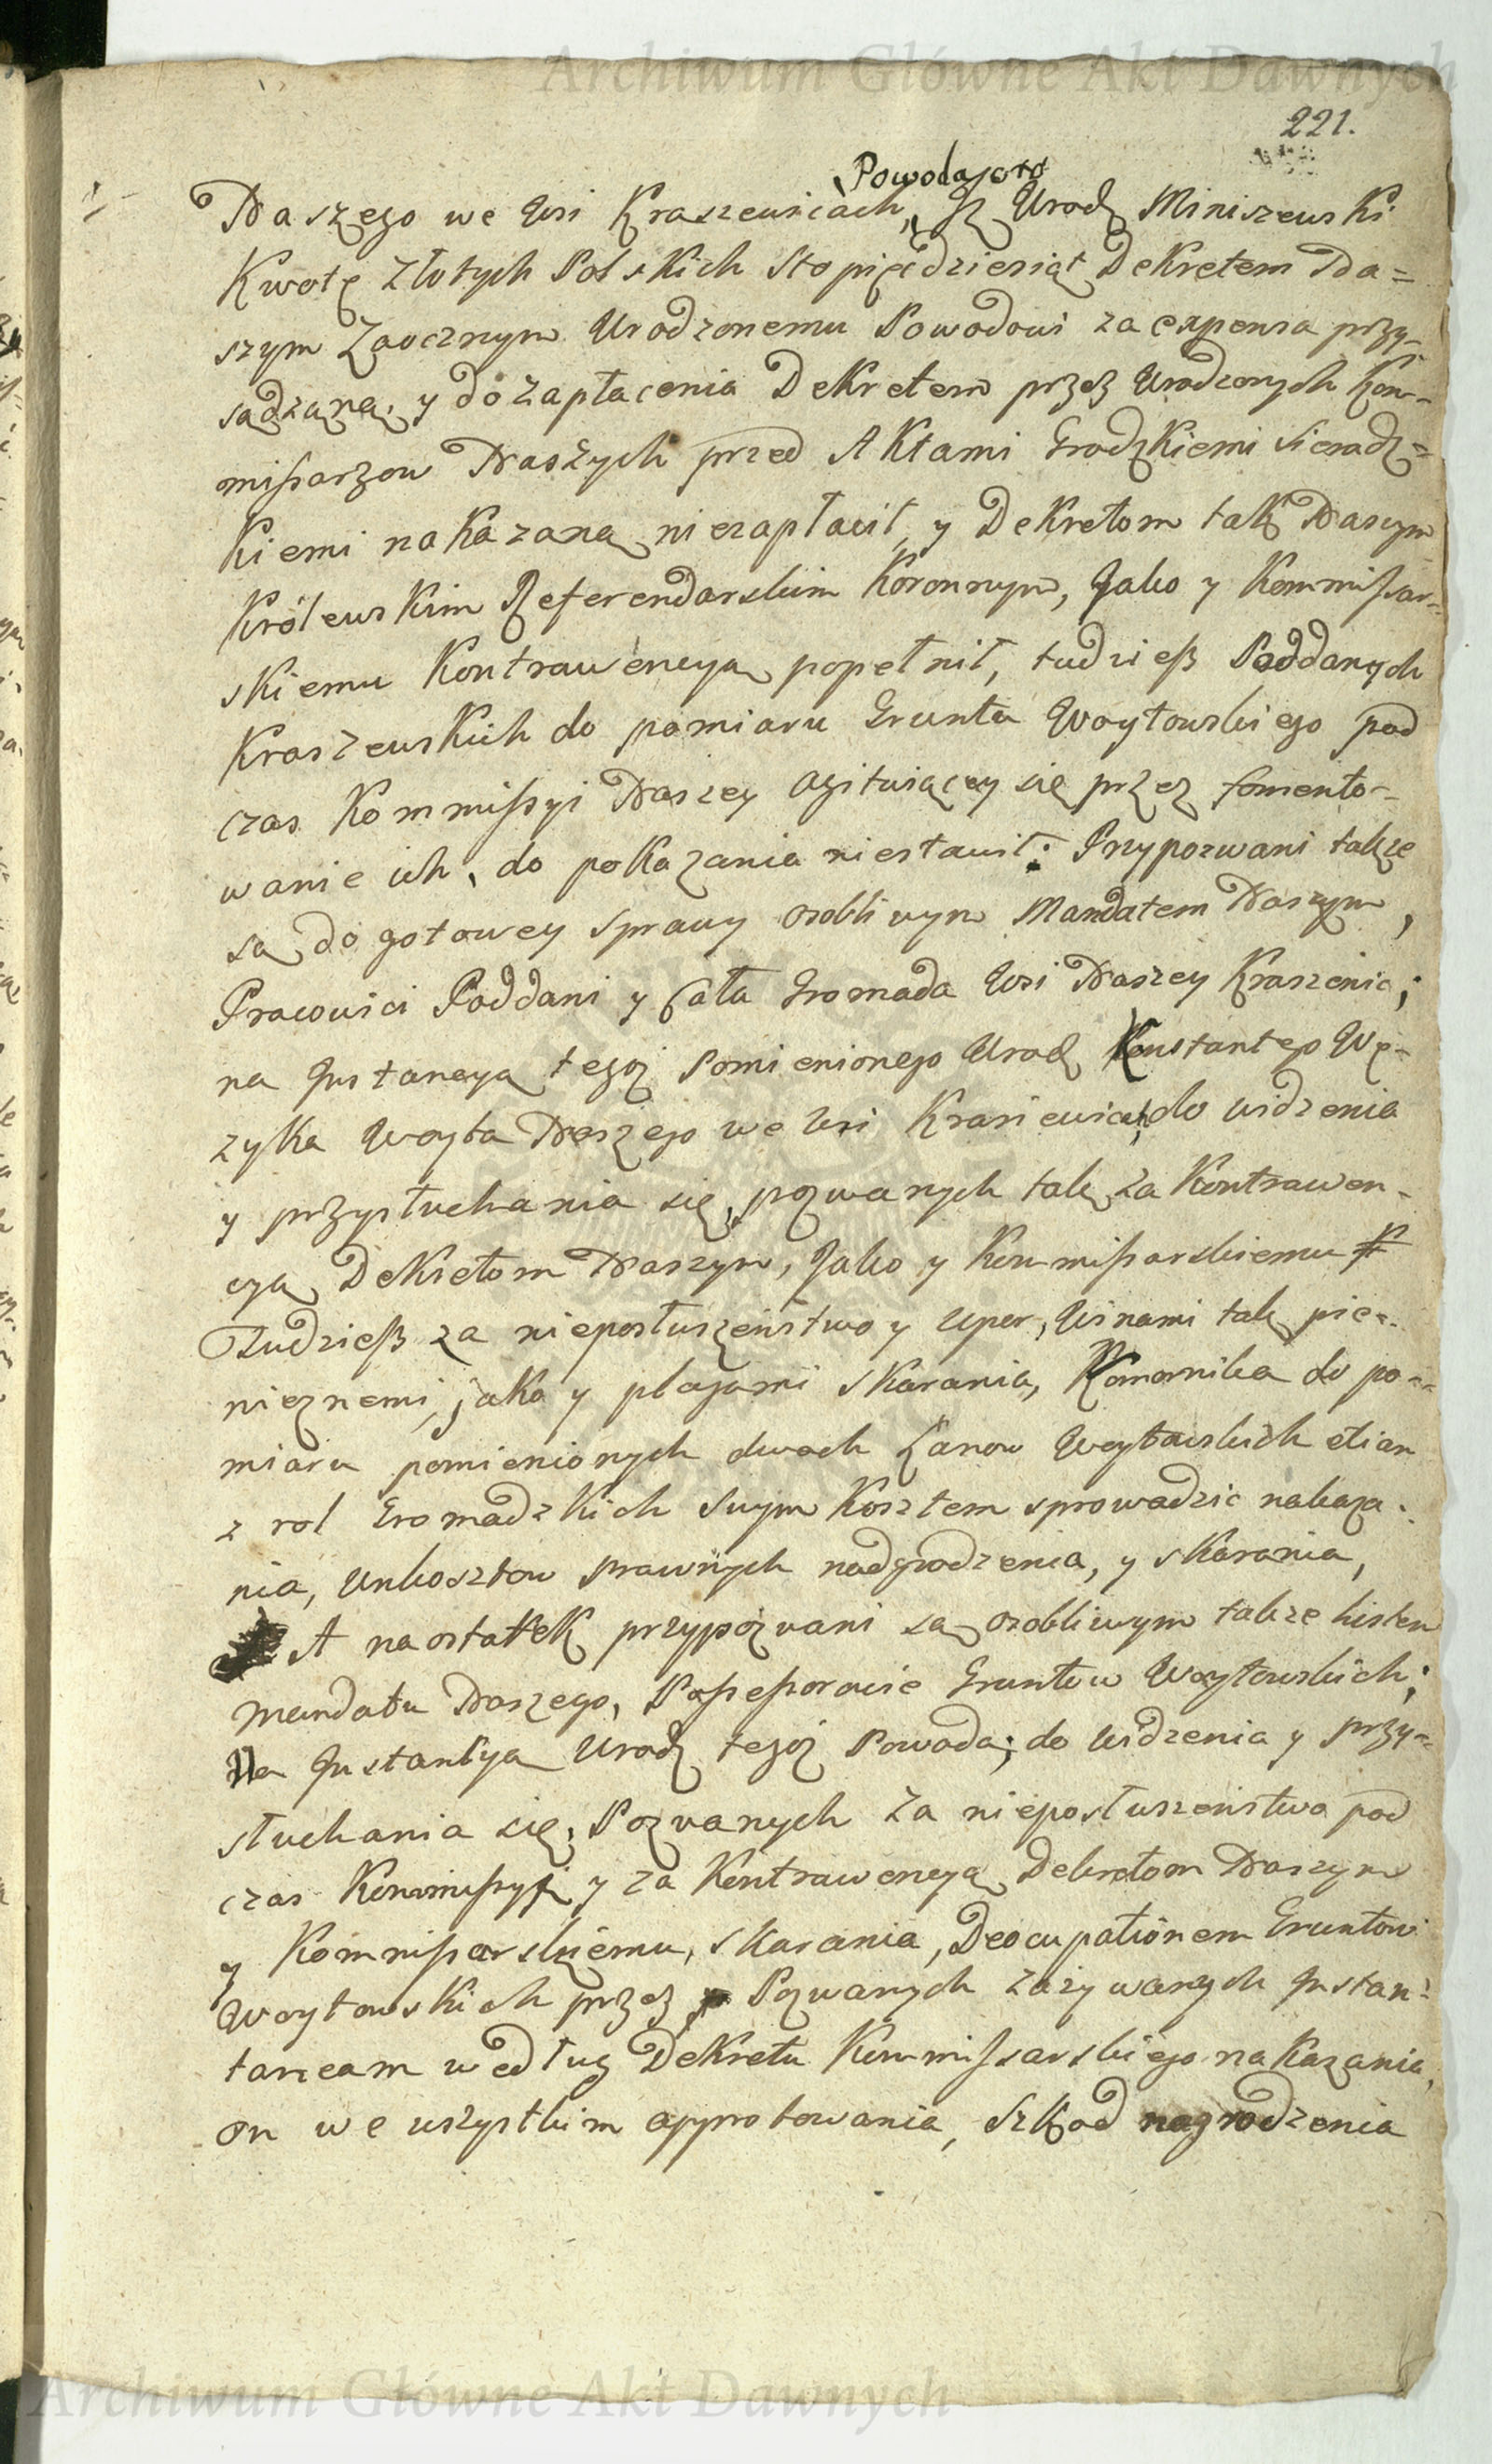 Archiwum Główne Akt Dawnych
221.
Powoda, o to
Naszego we Wsi Kraszewicach, Jż Urodz Miniszewski
Kwotę Złotych Polskich Stopięcdziesiąt Dekretem Na=
szym Zaocznym Urodzonemu Powodowi za expensa przy-
sądzaną, y do zapłacenia Dekretem przez Urodzonych Kom-
mißarzow Naszych przed Aktami Grodzkiemi Sieradz=
kiemi nakazaną niezapłacił, y Dekretom tak Naszym
Królewskim Referendarskim Koronnym, Jako y Kommißar-
skiemu Kontrawencyą popełnił, tudzieß Poddanych
Kraszewskich do pomiaru Gruntu Woytowskiego pod
czas Kommißyi Naszey agituiącey się przez fomento-
wanie ich, do pokazania niestawił: Przypozwani także
są do gotowey sprawy osobliwym Mandatem Naszym,
Pracowici Poddani y Cała Gromada Wsi Naszey Kraszewic;
na Jnstancyą tegoż Pomienionego Urodz Konstantego Wę-
zyka Woyta Naszego we Wsi Krasiewicach, do widzenia
y przysłuchania się, pozwanych tak za Kontrawen-
cyą Dekretom Naszym, Jako y Kommißarskiemu #
Tudzieß za nieposłuszeństwo y upor, Winami tak pie-
nieznemi, jako y plagami skarania, Komornika do po-
miaru pomienionych dwoch Łanow Woytowskich etiam
z rol Gromadzkich Swym Kosztem sprowadzic nakaza-
nia, Unkosztow prawnych nadgrodzenia, y skarania,
A na ostatek przypozwani są osobliwym także listem
Mandatu Naszego, Poßeßorowie Gruntow Woytowskich;
Na Jnstantyą Urodz tegoż Powoda; do widzenia y przy-
słuchania się, Pozwanych za nieposłuszenstwo pod
czas Kommißyi y za Kontrawencyą Dekretom Naszym
y Kommißarskiemu, skarania, Deocupationem Gruntow
Woytowskich przez Pozwanych zażywanych Jnstan=
taneam według Dekretu Kommißarskiego nakazania,
on we wszystkim approbowania, Szkod nagrodzenia
Archiwum Główne Akt Dawnych